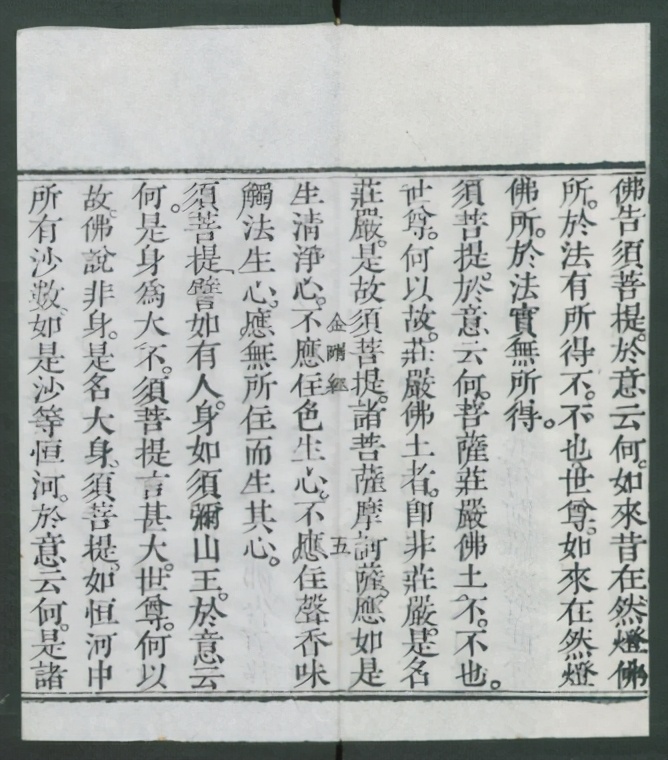 佛告須菩提。於意云何。如來昔在然燈佛
所。於法有所得不。不也世尊。如來在然燈
佛所。於法實無所得。
須菩提。於意云何。菩薩莊嚴佛土不。不也。
世尊。何以故。莊嚴佛土者。即非莊嚴。是名
莊嚴。是故須菩提。諸菩薩摩訶薩。應如是
金剛經 五
生清淨心。不應住色生心。不應住聲香味
觸法生心。應無所住而生其心。
須菩提。譬如有人。身如須彌山王。於意云
何。是身爲大不。須菩提言甚大。世尊。何以
故。佛說非身。是名大身。須菩提。如恒河中
所有沙數。如是沙等恒河。於意云何。是諸